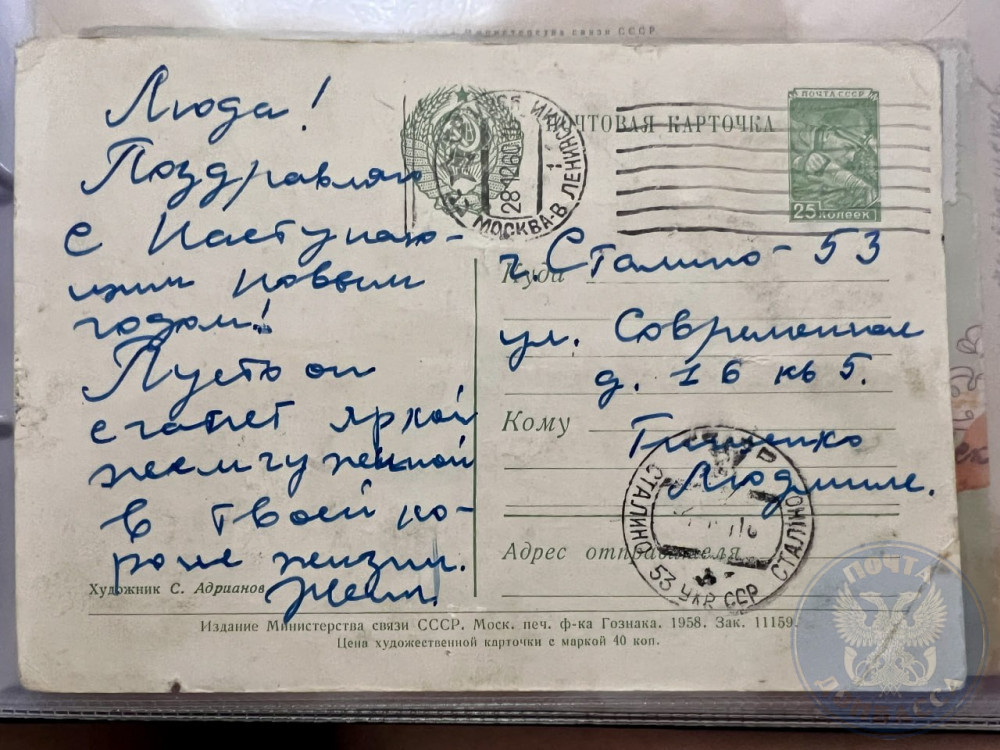 Министерства связи СССР
Люда!
Поздравляю
с Наступаю-
щим новым
годом!
Пусть он
станет яркой
жемчужиной
в твоей ко-
роне жизни.
Женя.
Художник С. Адрианов
ПОЧТОВАЯ КАРТОЧКА
ПОЧТА СССР
25 КОПЕЕК
МОСКВА-В ЛЕНИНСКИЙ
28 12
Куда
г. Сталино-53
ул. Современная
д. 16 кв 5.
Кому
Людмиле.
СТАЛИНО 53 УКР ССР СТАЛІНО
Адрес отправителя
Издание Министерства связи СССР. Моск. печ. ф-ка Гознака. 1958. Зак. 11159.
Цена художественной карточки с маркой 40 коп.
ПОЧТА
ДОНБАССА